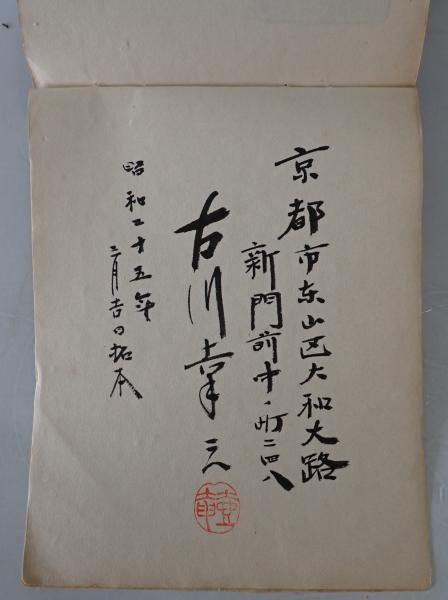 京都市东山区大和大路
新門前中ノ町二四八
古川幸三
昭和二十五年
二月吉日拓本